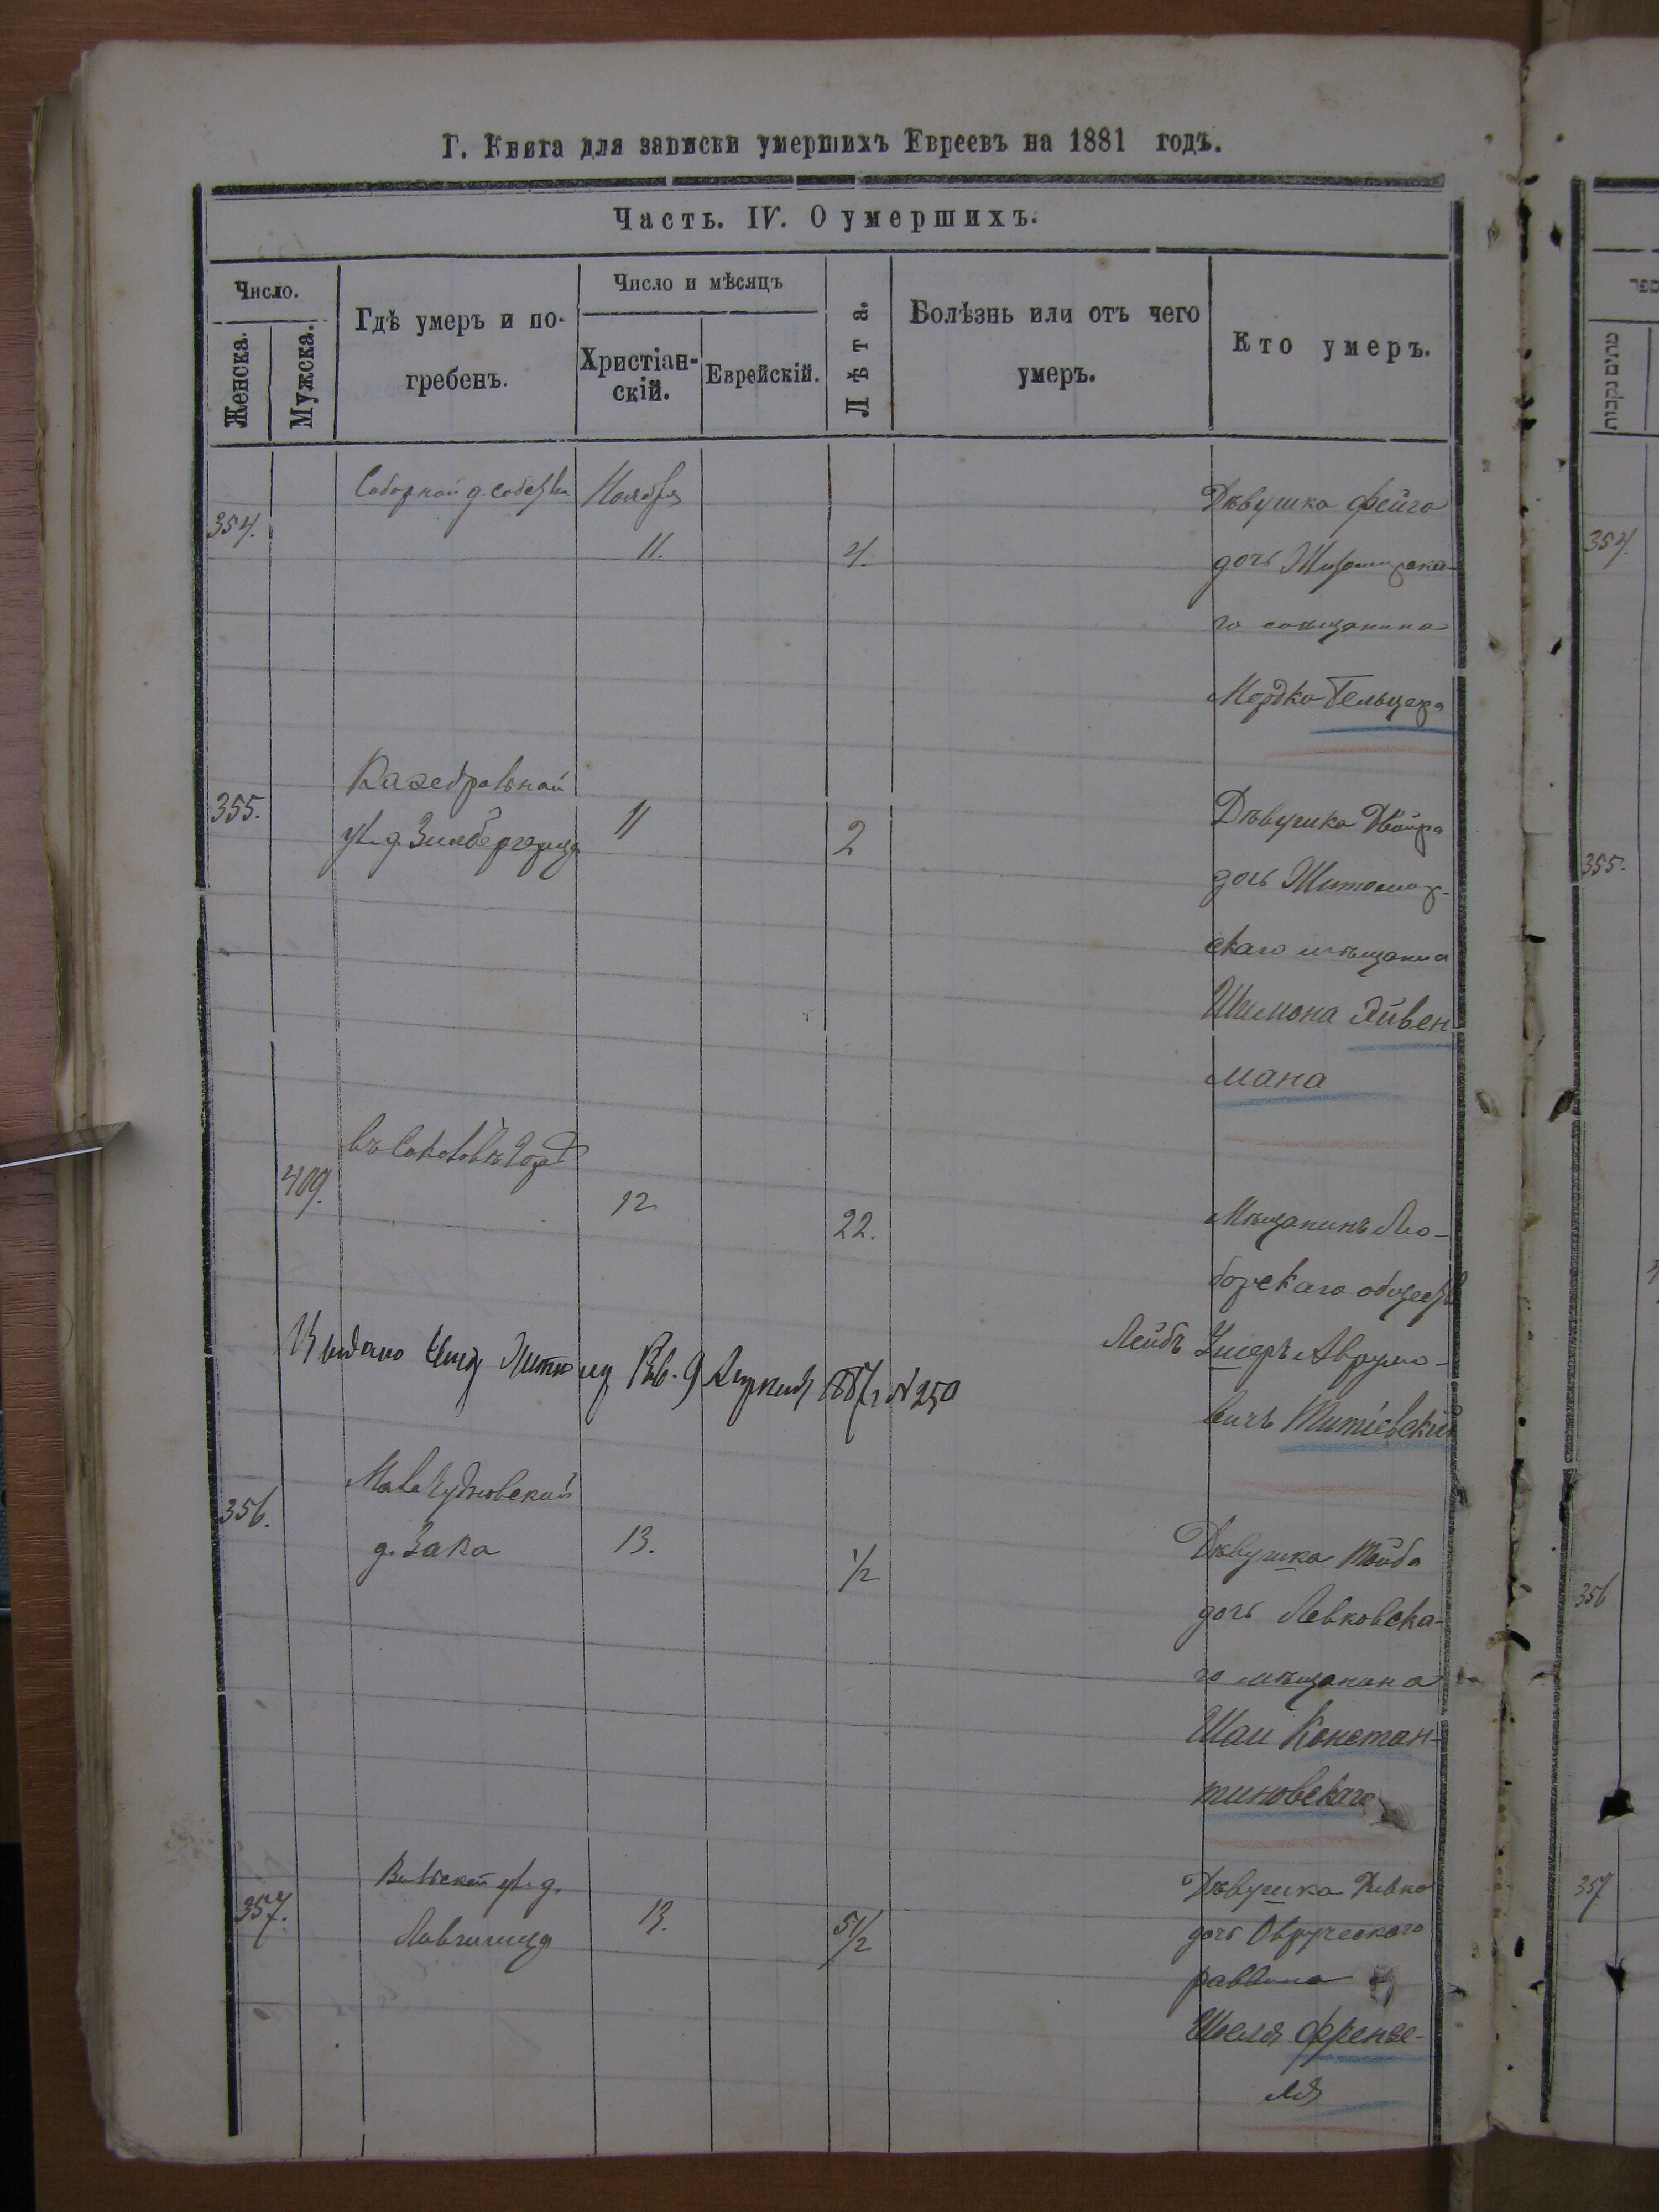 Г. Книга для записки умершихъ Евреевъ на 1881 годъ.
Часть. IV. О умершихъ.
Число.
Женска.
Мужска.
Гдѣ умеръ и по-
гребенъ.
Число и мѣсяцъ
Христіан-
скій.
Еврейскій.
Лѣта.
Болѣзнь или отъ чего
умеръ.
Кто умеръ.
354.
Соборной д.
Ноября
11.
4.
Дѣвушка Фейга
дочь
го мѣщанина
Мордко Гельцера
355.
Каѳедральной
ул. д.
11
2
Дѣвушка Двойра
дочь Житомир-
скаго мѣщанина
Шимона Эйвен
мана
409.
въ
12
22.
Мѣщанинъ Лю-
борскаго обществ
Лейбъ Ушеръ Аврумо-
вичъ Титіевскій
Выдано 9 Апреля № 250
356.
Мало Чудновской
д. Зака
13.
1/2
Дѣвушка Тойба
дочь Левковска-
го мѣщанина
Шаи Констан-
тиновскаго
357.
Вильской ул. д.
13.
5 1/2
Дѣвушка Ривка
дочь Овручскаго
раввина
Шоеля Френке-
ля
354.
355.
356
357